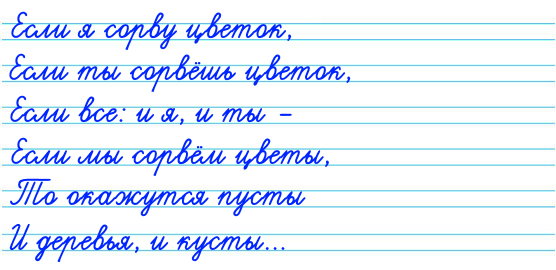 Если я сорву цветок,
Если ты сорвёшь цветок,
Если все: и я, и ты –
Если мы сорвём цветы,
То окажутся пусты
И деревья, и кусты...